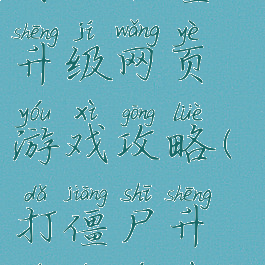 shēng jí wǎng yè
升级网页
yóu xì gōng lüè
游戏攻略(
dǎ jiāng shī shēng
打僵尸升